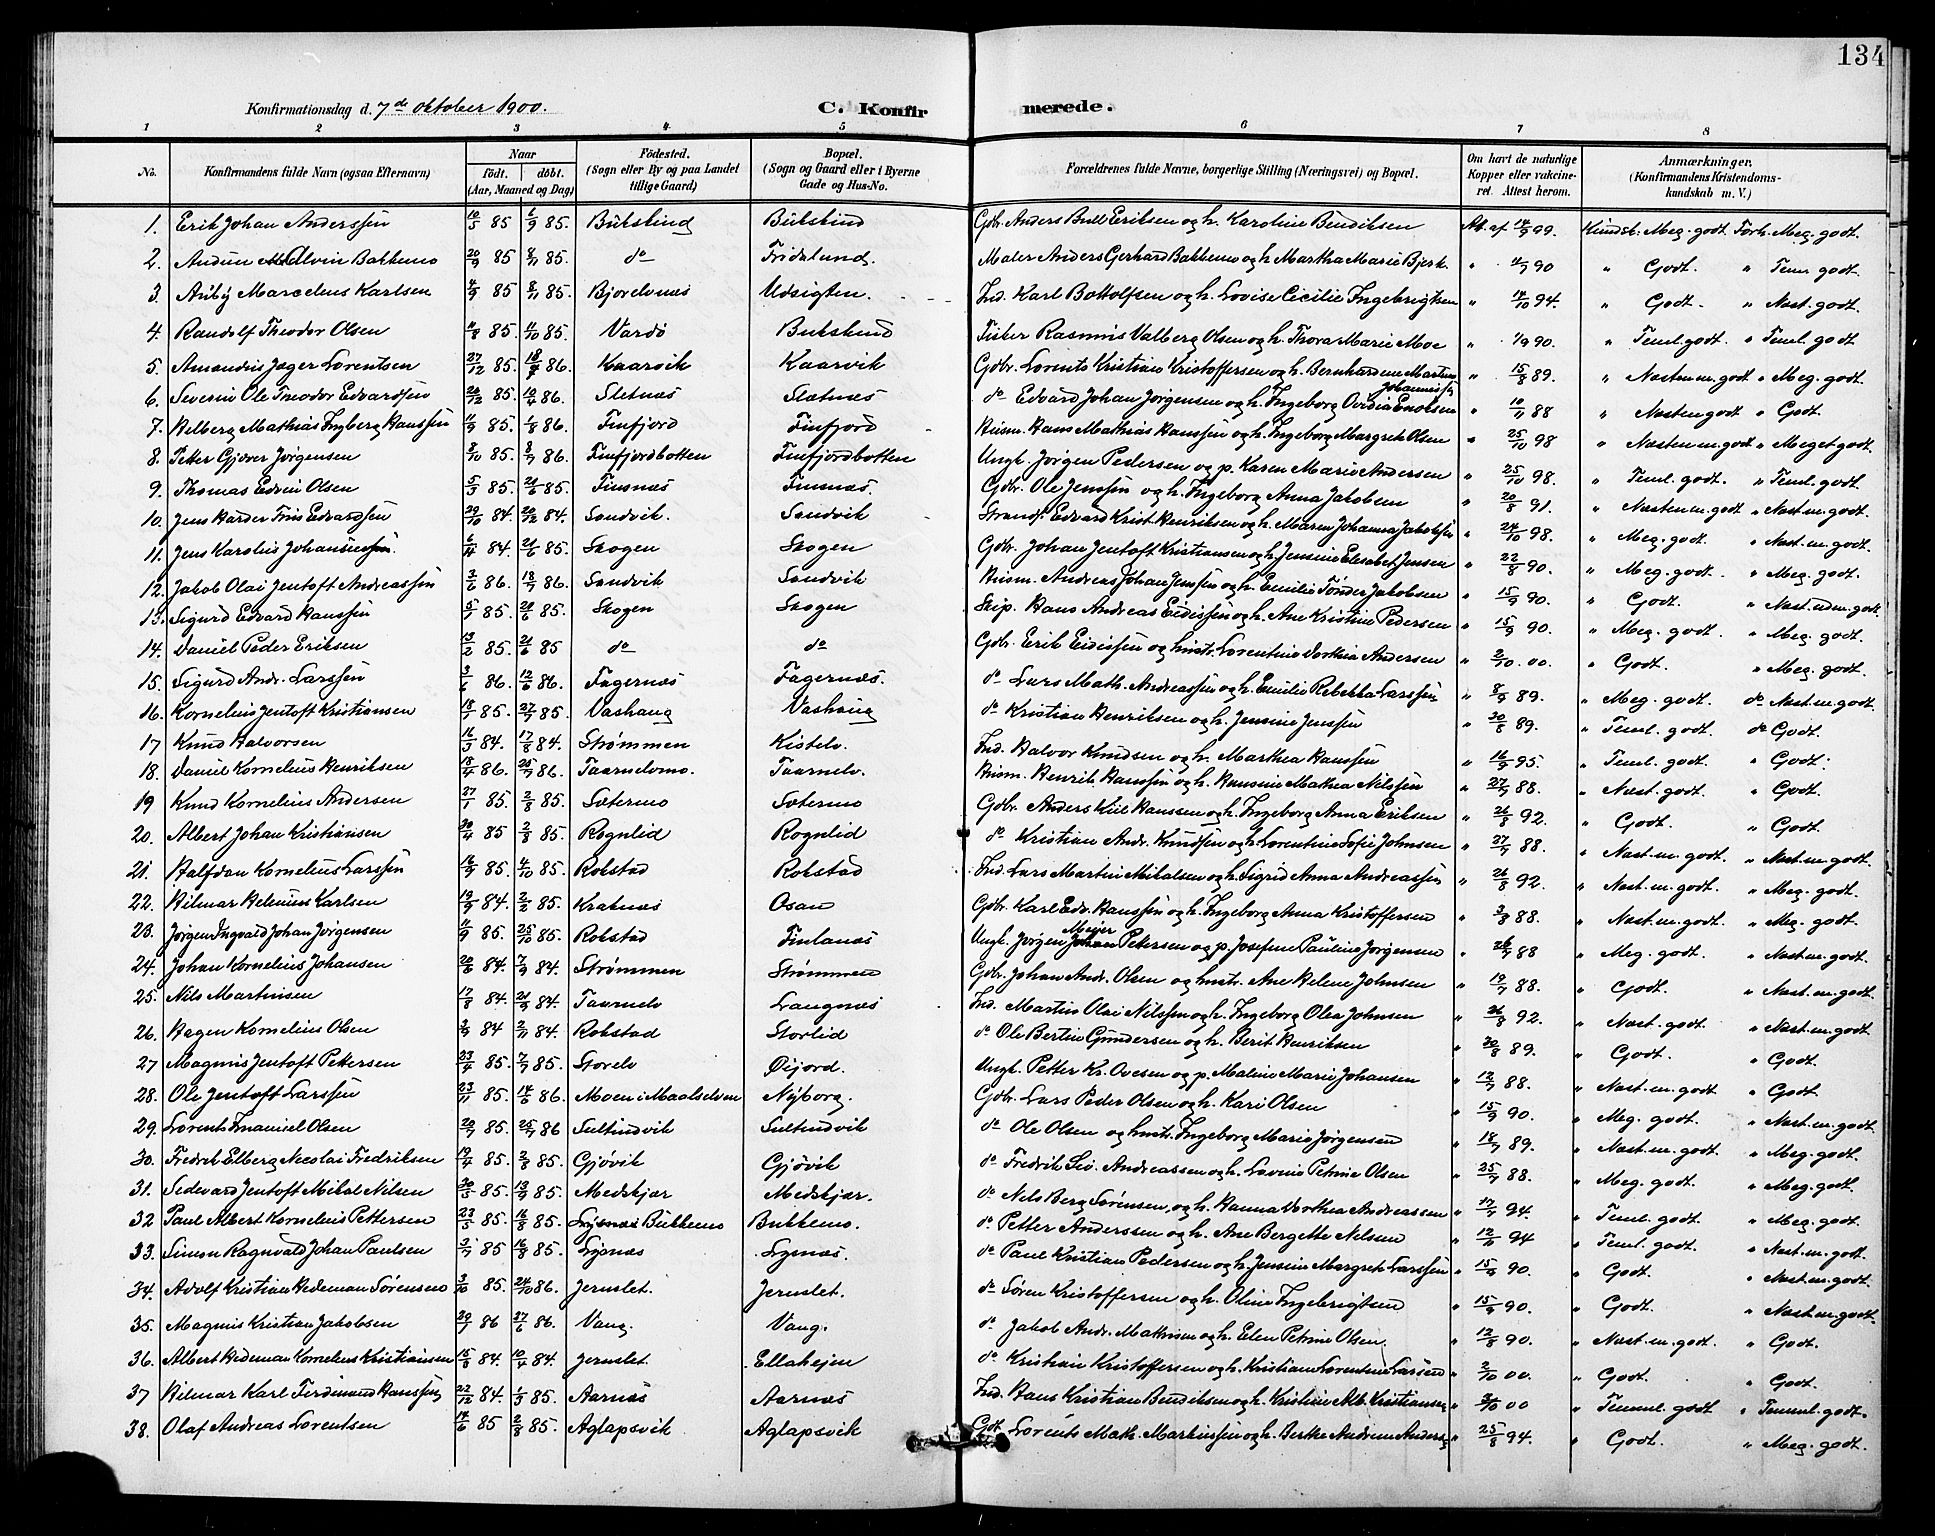 134
Konfirmationsdag d. 7de Oktober 1900. C. Konfirmerede.
1 2 3 4 5 6 7 8
No. Konfirmandens fulde Navn (ogsaa Efternavn) Naar Födt. döbt. (Aar, Maaned og Dag) Födested. (Sogn eller By og paa Landet tillige Gaard) Bopæl. (Sogn og Gaard eller i Byerne Gade og Hus-No. Forældrenes fulde Navne, borgerlige Stilling (Næringsvei) og Bopæl. Om havt de naturlige Kopper eller vakcineret. Attest herom. Anmærkninger. (Konfirmandens Kristendomskundskab m. V.)
1. Erik Johan Anderssen 10/5 85 6/9 85. Bukskind Bukskind Gdbr. Anders Bull Eriksen og h. Karoline Bendiksen At. af 14/9 99. Kundsk. Meg. godt. Forh. Meg. godt.
2. Alvin Bakkemo 20/9 85 8/11 85. do Fridslund. Maler Anders Gerhard Bakkemo og h. Martha Marie Bjerk. " 90 " Godt. " Teml. godt.
3. Marcelius Karlsen 4/9 85 8/11 85. Bjorelvnes Udsigten. Ind. Karl Bottolfsen og h. Lovise Cecilie Ingebrigtsen " 14/10 94. " Godt. " Nast. godt.
4. Randolf Theodor Olsen 11/8 85. 11/10 85. Vardø Bukskind Fisker Rasmus Valberg Olsen og h. Thora Marie Moe " 90. " Teml. godt. " Teml. godt.
5. Amandus Jæger Lorentsen 27/12 85. 86. Kaarvik Kaarvik Gdbr. Lorents Kristian Kristoffersen og h. Bernhardine " 15/8 89. " Nasten m. godt " Meg. godt.
6. Severin Ole Theodor Edvardsen 20/12 85. 19/4 86. Sletnæs Sletnæs do Edvard Johan Jørgensen og h. Ingeborg Enoksen " 88 " Nasten godt " Godt.
7. Helberg Mathias Ingberg Hanssen 11/9 85. 1/8 86. Finfjord Finfjord Husm. Hans Mathias Hanssen og h. Ingeborg Margrete Olsen " 25/10 98 " Næsten m. godt " Meget godt.
8. Petter Gjæver Jørgensen 8/10 85. 8/7 86. Finfjordbotten Finfjordbotten Ungk. Jørgen Pedersen og p. Karen Marie Andersen " 25/10 98. " Teml. godt. " Teml. godt.
9. Thomas Edvin Olsen 5/3 85. 21/6 85. Finsnæs Finsnæs. Gdbr. Ole Jenssen og h. Ingeborg Anna Jakobsen " 20/8 91. " Nasten m. godt " Nast. m. godt.
10. Jens Harder Friis Edvardsen 29/10 84. 20/12 84. Sandvik. Sandvik Strands. Edvard Krist. Henriksen og h. Maren Johanna Jakobsen " 24/10 98. " Meg. godt. " Nast. m. godt.
11. Jens Karolius Johanssen 6/11 84. 21/6 85. Skogen Skogen Gdbr. Johan Jentoft Kristiansen og h. Jensine Elisabet Jensen " 22/8 90. " Meg. godt. " Meg. godt.
12. Jakob Olai Jentoft Andreassen 3/6 86. 18/7 86. Sandvik Sandvik Husm. Andreas Johan Jenssen og h. Emilie Tønder Jakobsen " 15/9 90. " Godt. " Nast. udm. godt
13. Sigurd Edvard Hanssen 5/1 85. 21/6 85. Skogen Skogen Skip. Hans Andreas Eidissen og h. Ane Kristine Pedersen " 15/9 90. " Meg. godt. " Meg. godt.
14. Daniel Peder Eriksen 13/2 85. 21/6 85 do do Gdbr. Erik Eidissen og hustr. Lorentine Dorthea Andersen " 2/10.00. " Godt. " Meg. godt.
15. Sigurd Andr. Larssen 3/6 86. 12/6 86. Fagernæs Fagernæs. do Lars Math. Andreassen og h. Emilie Rebekka Larssen " 8/9 89. " Meg. godt do Nast. m. godt.
16. Kornelius Jentoft Kristiansen 18/1 85. 27/9 85. Vashaug Vashaug do Kristian Henriksen og h. Jensine Jenssen " 30/8 89. " Teml. godt. do Godt.
17 Knud Halvorsen 16/3 84. 17/8 84. Strømmen Kistelv. Ind. Halvor Knudsen og h. Marthea Hanssen " 16/9 95. " Teml. godt. " Godt.
18. Daniel Kornelius Henriksen 18/4 86. 25/7 86. Taarnelvmo. Taarnelv. Husm. Henrik Hanssen og h. Hansine Mathea Nilssen " 27/7 88. " Nast. godt. " Godt.
19 Knud Kornelius Andersen 27/1 85. 2/8 85. Sætermo Sætermo Gdbr. Anders Kiil Hanssen og h. Ingeborg Anna Eriksen " 26/8 92. " Godt. " Godt.
20. Albert Johan Kristiansen 30/4 85 2/8 85. Rognlid Rognlid do Kristian Andr. Knudsen og h. Lorentine Sofie Johnsen " 27/7 88. " Nast. m. godt. " Nast. m. godt.
21. Halfdan Kornelius Larssen 16/9 85. 4/10 85. Rokstad Rokstad Ind. Lars Martin Mikalsen og h. Sigrid Anna Andreassen " 26/8 92. " Nast. m. godt. " Meg. godt.
22. Hilmar Helenius Karlsen 19/9 84. 2/2 85. Kraknæs Osan Gdbr. Karl Edv. Hanssen og h. Ingeborg Anna Kristoffersen " 3/8 88. " Nast. m. godt. " Meg. godt.
23. Jørgen Ingvald Johan Jørgensen 11/9 85. 25/10 85. Rokstad Finlanæs Ungk. Jørgen Meyer Petersen og p. Josefine Pauline Jørgensen " 88 " Meg. godt. " Nast. m. godt.
24. Johan Kornelius Johansen 20/6 84. 7/9 84. Strømmen Strømmen Gdbr. Johan Andr. Olsen og hustr. Ane Helene Johnsen " 19/7 88. " Godt. " Nast. m. godt.
25. Nils Martinsen 17/8 84. 21/9 84. Taarnelv Langnæs Ind. Martin Olai Nilssen og h. Ingeborg Olea Johnsen " 26/8 92. " Nast. godt " Nast. m. godt.
26. Hagen Kornelius Olsen 2/9 84 2/11 84. Rokstad Storlid do Ole Bertin Gundersen og h. Berit Henriksen " 30/8 89. " Godt. " Godt.
27 Magnus Jentoft Pettersen 23/4 85. 7/7 85. Storelv Öijord. Ungk. Petter Kr. Ovesen og p. Maline Marie Johansen " 12/7 88. " Nast. m. godt " Godt.
28. Ole Jentoft Larssen 23/11 85. 14/6 86. Moen i Maalselven Nyborg. Gdbr. Lars Peder Olsen og h. Kari Olsen " 15/9 90. " Meg. godt. " Nast. m. godt.
29. Lorents Emanuel Olsen 20/7 85. 25/7 86 Sultindvik Sultindvik do Ole Olsen og hustr. Ingeborg Marie Jørgensen " 18/7 89. " Nast. m. godt. " Meg. godt.
30. Fredrik Elberg Nicolai Fredriksen 19/4 85. 2/8 85. Gjövik Gjövik do Fredrik Sev. Andreassen og h. Lavine Petrine Olsen " 25/7 88. " Meg. godt. " Meg. godt.
31. Sedevard Jentoft Mikal Nilsen 30/5 85. 13/9 85. Medskjær Medskjær. do Nels Berg Sørensen og h. Hanna Dorthea Andreassen " 17/7 94. " Teml. godt. " Meg. godt.
32 Paul Albert Kornelius Pettersen 23/5 85. 16/8 85. Lysnæs Bukkemo Bukkemo. do Petter Anderssen og h. Ane Bergette Nilsen " 94 " Teml. godt. " Nast. m. godt.
33. Simon Ragnvald Johan Paulsen 3/7 85 16/8 85. Lysnæs Lysnæs. do Paul Kristian Pedersen og h. Jensine Margrete Larssen " 15/9 90. " Godt. " Nast. m. godt.
34. Adolf Kristian Hedeman Sørensen 3/10 85. 24/10 86. Jernslet. Jernslet. do Søren Kristoffersen og h. Oline Ingebrigtsen " 15/9 90. " Godt. " Nast. m. godt.
35. Magnus Kristian Jakobsen 20/1 86 27/6 86. Vang Vang. do Jakob Andr. Mathisen og h. Elen Petrine Olsen. " 12/8 90. " Nast. m. godt. " Godt.
36. Albert Hedeman Kornelius Kristiansen 15/3 84. 10/4 84. Jernslet. Ellahejen do Kristian Kristoffersen og h. Kristiane Lorentine Larssen " 2/10 00. " Godt. " Godt.
37 Hilmar Karl Ferdinand Hanssen 22/12 84. 1/3 85. Aarnæs Aarnæs Ind. Hans Kristian Bendiksen og h. Kristine Alb. Kristiansen " 3/10 00 " Temml. godt. " Temml. godt.
38. Olaf Andreas Lorentsen 14/6 85 2/8 85. Aglapsvik Aglapsvik Gdb. Lorents Math. Markussen og h. Berthe Andrine Anders " 25/8 94. " Godt. " Meg. godt.